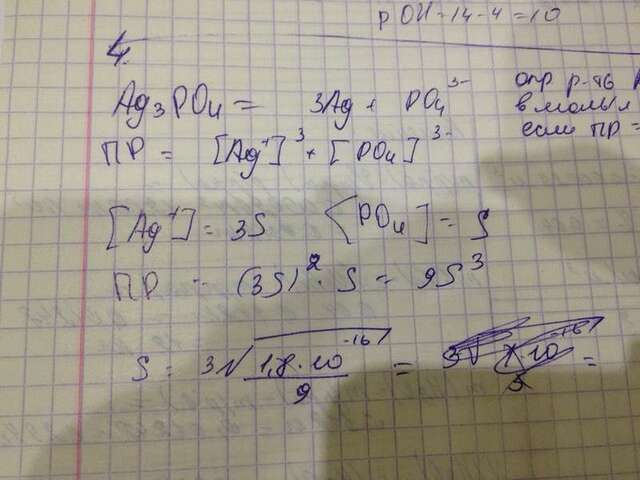 pOH=14-4=10
4.
Ag3PO4 = 3Ag+ PO4 3-
опр р-ть
в моль/л
если ПР =
ПР = [Ag+]3 + [PO4]3-
[Ag+] = 3S [PO4] = S
ПР = (3S)2 · S = 9S3
S = 3√1,8·10-16/9 = =